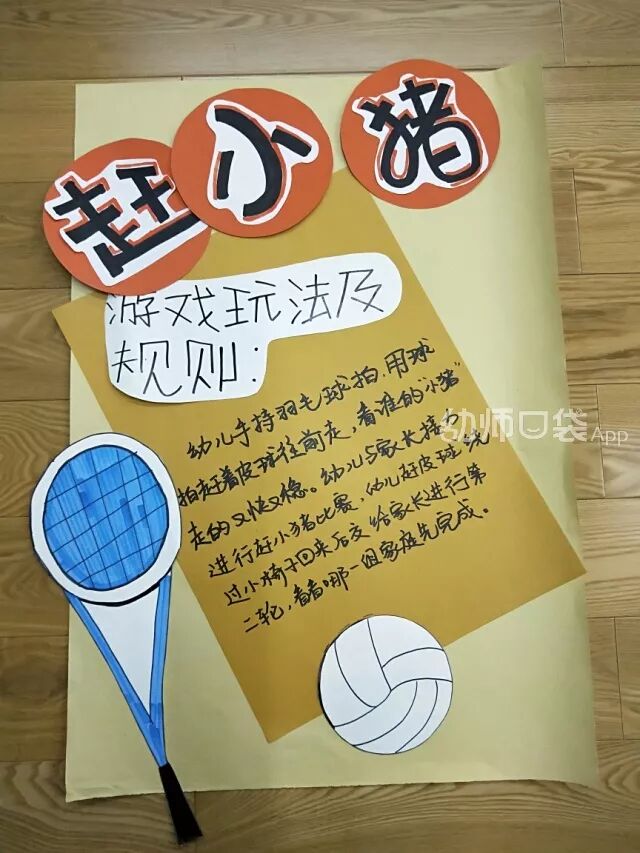 赶小猪
游戏玩法及
规则:
幼儿手持羽毛球拍,用球
拍赶着皮球往前走,看谁的“小猪”
走的又快又稳。幼儿与家长接力
进行赶小猪比赛,幼儿赶皮球绕
过小椅子回来后交给家长进行第
二轮,看看哪一组家庭先完成。
幼师口袋App